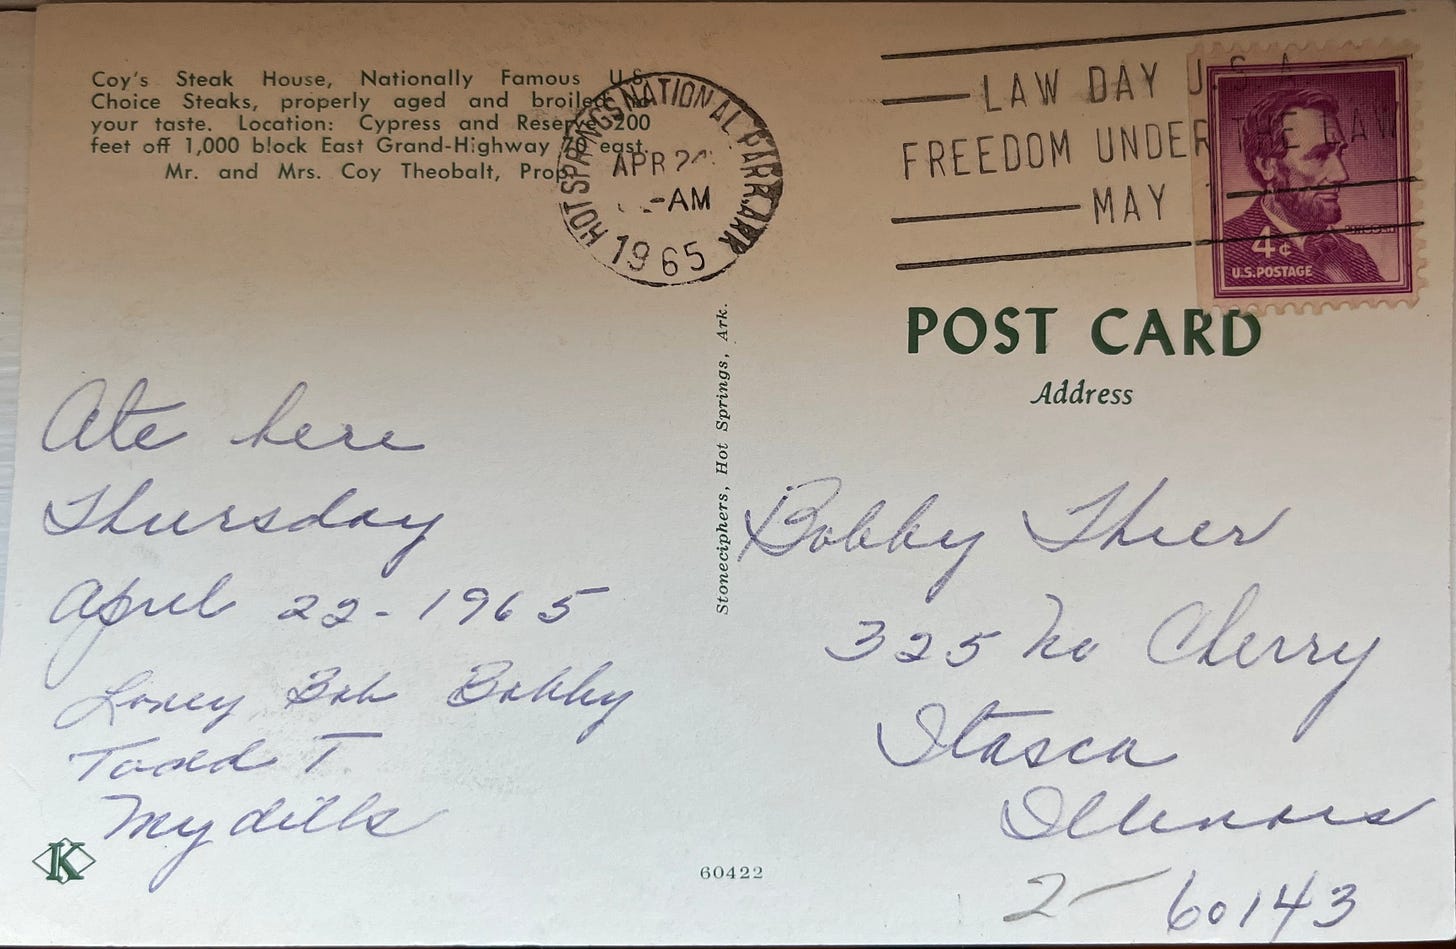 Coy's Steak House, Nationally Famous U.S.
Choice Steaks, properly aged and broiled to
your taste. Location: Cypress and Reserve 200
feet off 1,000 block East Grand-Highway 70 east.
Mr. and Mrs. Coy Theobalt, Prop.
HOT SPRINGS NATIONAL PARK ARK
APR
AM
1965
LAW DAY U.S.A.
FREEDOM UNDER THE LAW
MAY
4¢
U.S. POSTAGE
POST CARD
Address
Stoneciphers, Hot Springs, Ark.
Ate here
Thursday
April 22-1965
Bob Bobby
Todd T.
Bobby Thier
325 No Cherry
Itasca
Illinois
60143
K
60422
2-